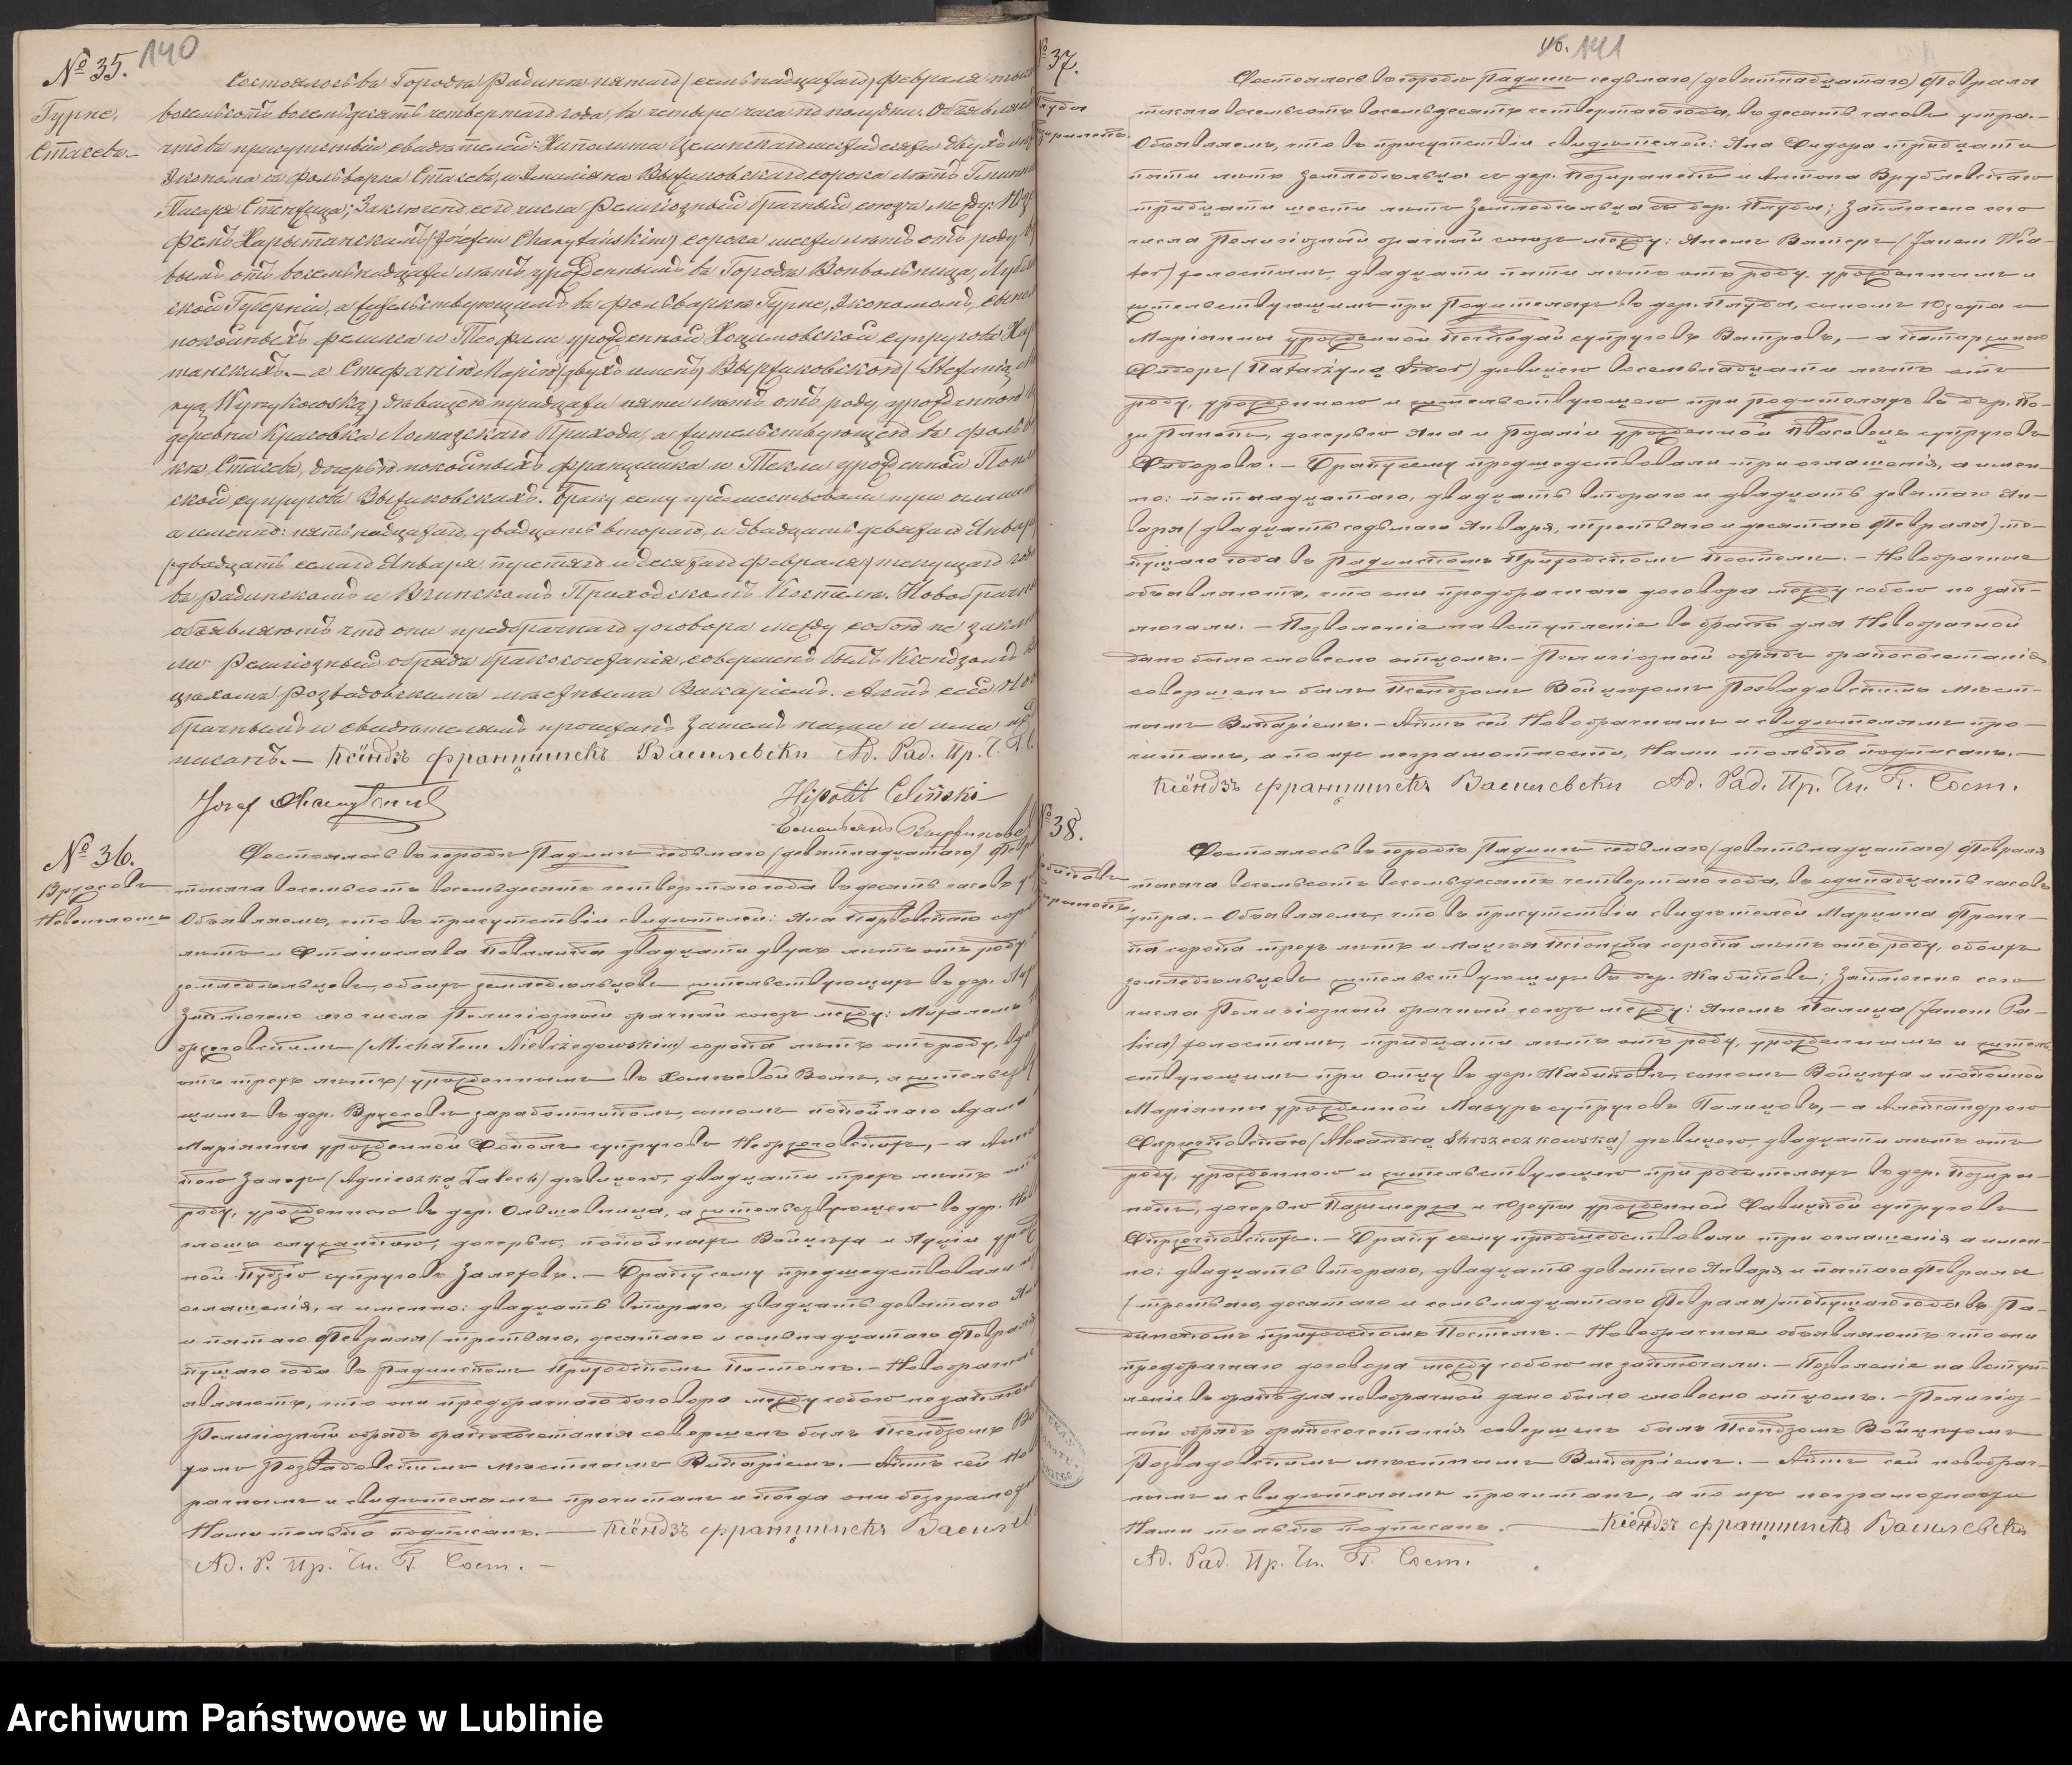 140
№ 35.
Гурне,
Стасевъ.
Состоялось въ Городѣ Радинѣ пятаго (семьнадцатаго) Февраля тысяча
восемьсотъ восемьдесятъ четвертаго года, въ четыре часа по полудни. Объявляемъ
что въ присутствіи свидѣтелей: Ипполита Целинскаго шестидесяти двухъ лѣтъ
Эконома съ фольварка Стасевъ, и Эмиліяна Выржиковскаго сорока лѣтъ Гминнаго
Писаря; Заключенъ сего числа Религіозный брачный союзъ между: Юзе
фомъ Харытанскимъ (Józefem Charytańskim) сорока шести лѣтъ отъ роду, 
вымъ отъ восемьнадцати лѣтъ, урожденнымъ въ Городѣ Вонвольница, Люблин
ской Губерніи, а жительствующимъ въ фольваркѣ Гурне, Экономомъ, сыномъ
покойныхъ Феликса и Теофили урожденной супруговъ Хары
танскихъ. — а Стефаніею Маріею (двухъ именъ) Выржиковскою (Stefanią
Wyrzykowską) дѣвицею тридцати пяти лѣтъ отъ роду, урожденною въ
деревни Красовка Ломазскаго Прихода, а жительствующею въ фольвар
кѣ Стасевъ, дочерью покойныхъ Францишка и Текли урожденной
ской супруговъ Выржиковскихъ. Браку сему предшествовали три оглашенія
а именно: пятьнадцатаго, двадцать втораго, и двадцать девятаго Января
(двадцать седмаго Января, третьяго и десятаго Февраля) текущаго года
въ Радинскомъ и Приходскомъ Костелѣ. Новобрачные
объявляютъ что они предбрачнаго договора между собою не заключа
ли. Религіозный обрядъ бракосочетанія совершенъ былъ Ксендзомъ Вой
цѣхомъ Розвадовскимъ мѣстнымъ Викаріемъ. Актъ сей Ново
брачнымъ и свидѣтелямъ прочитанъ Затемъ нами и ими под
писанъ. — Ксёндзъ Францишекъ Василевски Ад. Рад. Пр. Ч. Г. С.
Józef Charytański
Hipolit Celiński
№ 36.
Состоялось въ городѣ Радинѣ седьмаго (девятнадцатаго) Февр
тысяча восемьсотъ восемьдесятъ четвертаго года въ десять часовъ у
Объявляемъ, что въ присутствіи свидѣтелей: Яна сорока
лѣтъ и Станислава двадцати двухъ лѣтъ отъ роду
земледѣльцевъ, обоихъ земледѣльцовъ жительствующихъ въ дер.
Заключенъ сего числа Религіозный брачный союзъ между: Михаломъ Н
(Michałem Niebrzegowskim) сорока лѣтъ отъ роду, вдов
отъ трехъ лѣтъ, урожденнымъ въ Волѣ, а жительству
щимъ въ дер. заработникомъ, сыномъ покойнаго Адама
Маріянны урожденной супруговъ — а
Залехъ (Agnieszką Zalech) дѣвицею, двадцати трехъ лѣтъ отъ
роду, урожденною въ дер. Ольшевница, а жительствующею въ дер.
дочерью покойныхъ Войцѣха и Луціи урож
ной супруговъ Залеховъ. — Браку сему предшествовали
оглашенія, а именно: двадцать втораго, двадцать девятаго Ян
и пятаго Февраля (третьяго, десятаго и семьнадцатаго Февраля)
кущаго года въ Радинскомъ Приходскомъ Костелѣ. — Новобрачные
являютъ, что они предбрачнаго договора между собою не заключ
Религіозный обрядъ бракосочетанія совершенъ былъ Ксендзомъ Вой
Розвадовскимъ мѣстнымъ Викаріемъ. — Актъ сей Ново
рачнымъ и свидѣтелямъ прочитанъ и
Нами только подписанъ. — Ксёндзъ Францишекъ Василев
Ад. Р. Пр. Чи. Г. Сост. —
46. 141
№ 37.
Состоялось въ городѣ Радинѣ седьмаго (девятнадцатаго) Февраля
тысяча восемьсотъ восемьдесятъ четвертаго года, въ десять часовъ утра. —
Объявляемъ, что въ присутствіи свидѣтелей: Яна Сидора тридцати
пяти лѣтъ земледѣльца съ дер. и Антона Врублевскаго
тридцати шести лѣтъ земледѣльца съ дер. Плуды; Заключенъ сего
числа Религіозный брачный союзъ между: Яномъ Вятеръ (Janem Wia-
ter) холостымъ, двадцати пяти лѣтъ отъ роду, урожденнымъ и
жительствующимъ при Родителяхъ въ дер. Плуды, сыномъ Юзефа и
Маріянны урожденной супруговъ Вятровъ, — а Катаржиною
Сидоръ (Katarżyną Sidor) дѣвицею восемьнадцати лѣтъ отъ
роду, урожденною и жительствующею при родителяхъ въ дер. Ко-
дочерью Яна и Розаліи урожденной супруговъ
Сидоровъ. — Браку сему предшедствовали три оглашенія, а имен-
но: пятнадцатаго, двадцать втораго и двадцать девятаго Ян-
варя (двадцать седьмаго Января, третьяго и десятаго Февраля) те-
кущаго года въ Радинскомъ Приходскомъ Костелѣ. — Новобрачные
объявляютъ, что они предбрачнаго договора между собою не зак-
лючали. — Позволеніе на вступленіе въ бракъ для Новобрачной
дано было словесно отцомъ. — Религіозный обрядъ бракосочетанія
совершенъ былъ Ксендзомъ Войцѣхомъ Розвадовскимъ Мѣст-
нымъ Викаріемъ. — Актъ сей Новобрачнымъ и свидѣтелямъ про-
читанъ, а по ихъ неграмотности, Нами только подписанъ. —
Ксёндзъ Францишекъ Василевски Ад. Рад. Пр. Чи. Г. Сост.
№ 38.
Состоялось въ городѣ Радинѣ седьмаго (девятьнадцатаго) Февраля
тысяча восемьсотъ восемьдесятъ четвертаго года, въ одинадцать часовъ
утра. — Объявляемъ, что въ присутствіи свидѣтелей Марцина
сорока трехъ лѣтъ и Мацѣя сорока лѣтъ отъ роду, обоихъ
земледѣльцевъ жительствующихъ въ дер. Жабиковъ; Заключенъ сего
числа Религіозный брачный союзъ между: Яномъ Палица (Janem Pa-
licą) холостымъ, тридцати лѣтъ отъ роду, урожденнымъ и житель-
ствующимъ при Отцу въ дер. Жабиковъ, сыномъ Войцѣха и покойной
Маріянны урожденной Мазуръ супруговъ Палицовъ, — а Александрою
(Alexandrą Skrzeczkowską) дѣвицею, двадцати лѣтъ отъ
роду, урожденною и жительствующею при родителяхъ въ дер.
дочерью Казимержа и Юзефы урожденной Савицкой супруговъ
— Браку сему предшедствовали три оглашенія а имен-
но: двадцать втораго, двадцать девятаго Января и пятаго Февраля
(третьяго, десятаго и семьнадцатаго Февраля) текущаго года въ Ра-
динскомъ приходскомъ Костелѣ. — Новобрачные объявляютъ что они
предбрачнаго договора между собою не заключали. — Позволеніе на вступ-
леніе въ бракъ для новобрачной дано было словесно отцомъ. — Религіоз-
ный обрядъ бракосочетанія совершенъ былъ Ксендзомъ Войцѣхомъ
Розвадовскимъ мѣстнымъ Викаріемъ. — Актъ сей новобрач-
нымъ и свидѣтелямъ прочитанъ, а по ихъ неграмотности
Нами только подписанъ. — Ксёндзъ Францишекъ Василевски
Ад. Рад. Пр. Чи. Г. Сост.
Archiwum Państwowe w Lublinie